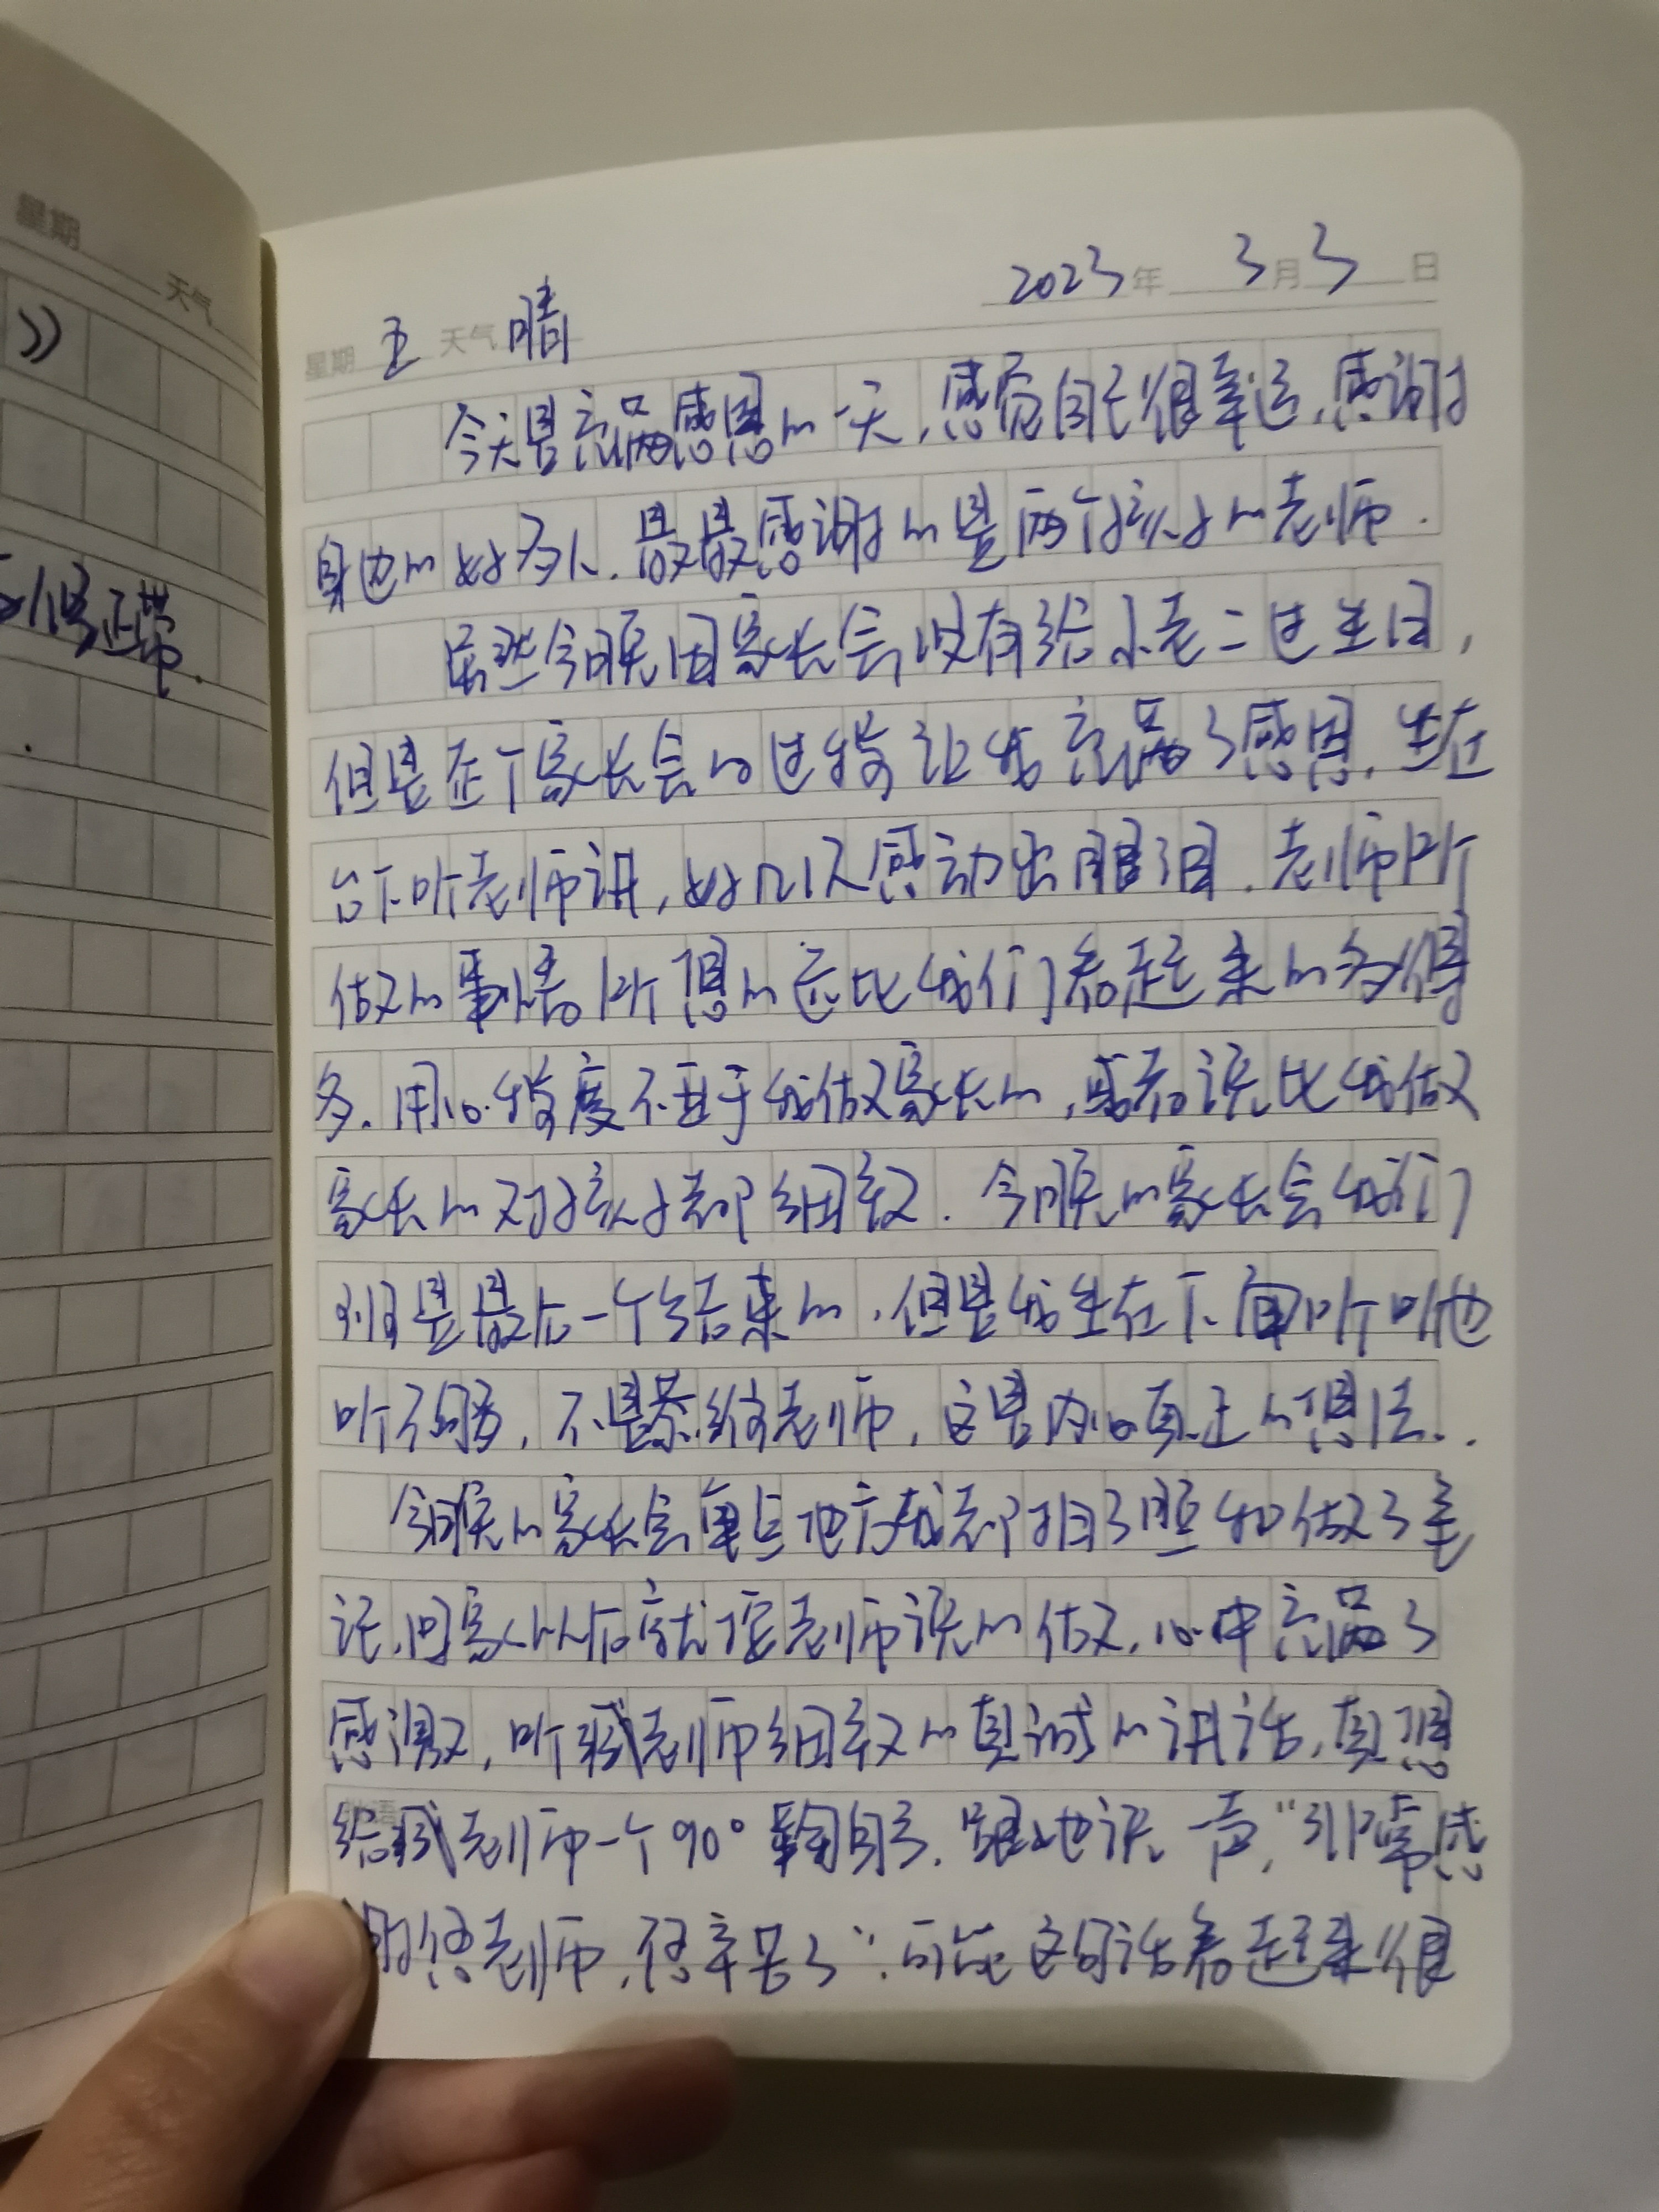 星期
天气
》
很正常.
.
2023年 3月3日
星期 五 天气 晴
今天是充满感恩的一天,感觉自己很幸运,感谢
身边的好多人.最最感谢的是两个孩子的老师.
虽然今晚因家长会没有给小老二过生日,
但是在个家长会的过程让我充满了感恩,坐在
台下听老师讲,好几次感动出眼泪.老师所
做的事情所想的远比我们看起来的多得
多.用心程度不亚于我做家长的,或者说比我做
家长的对孩子都细致.今晚的家长会我们
班是最后一个结束的,但是我坐在下面听听也
听不够,不是恭维老师,这是内心真正的想法.
今晚的家长会重点地方我都拍了照和做了笔
记,回家以后就按老师说的做,心中充满了
感激,听张老师细致的真诚的讲话,真想
给张老师一个90°鞠躬,跟她说一声,"非常感
谢您老师,您辛苦了".可能这句话看起来很